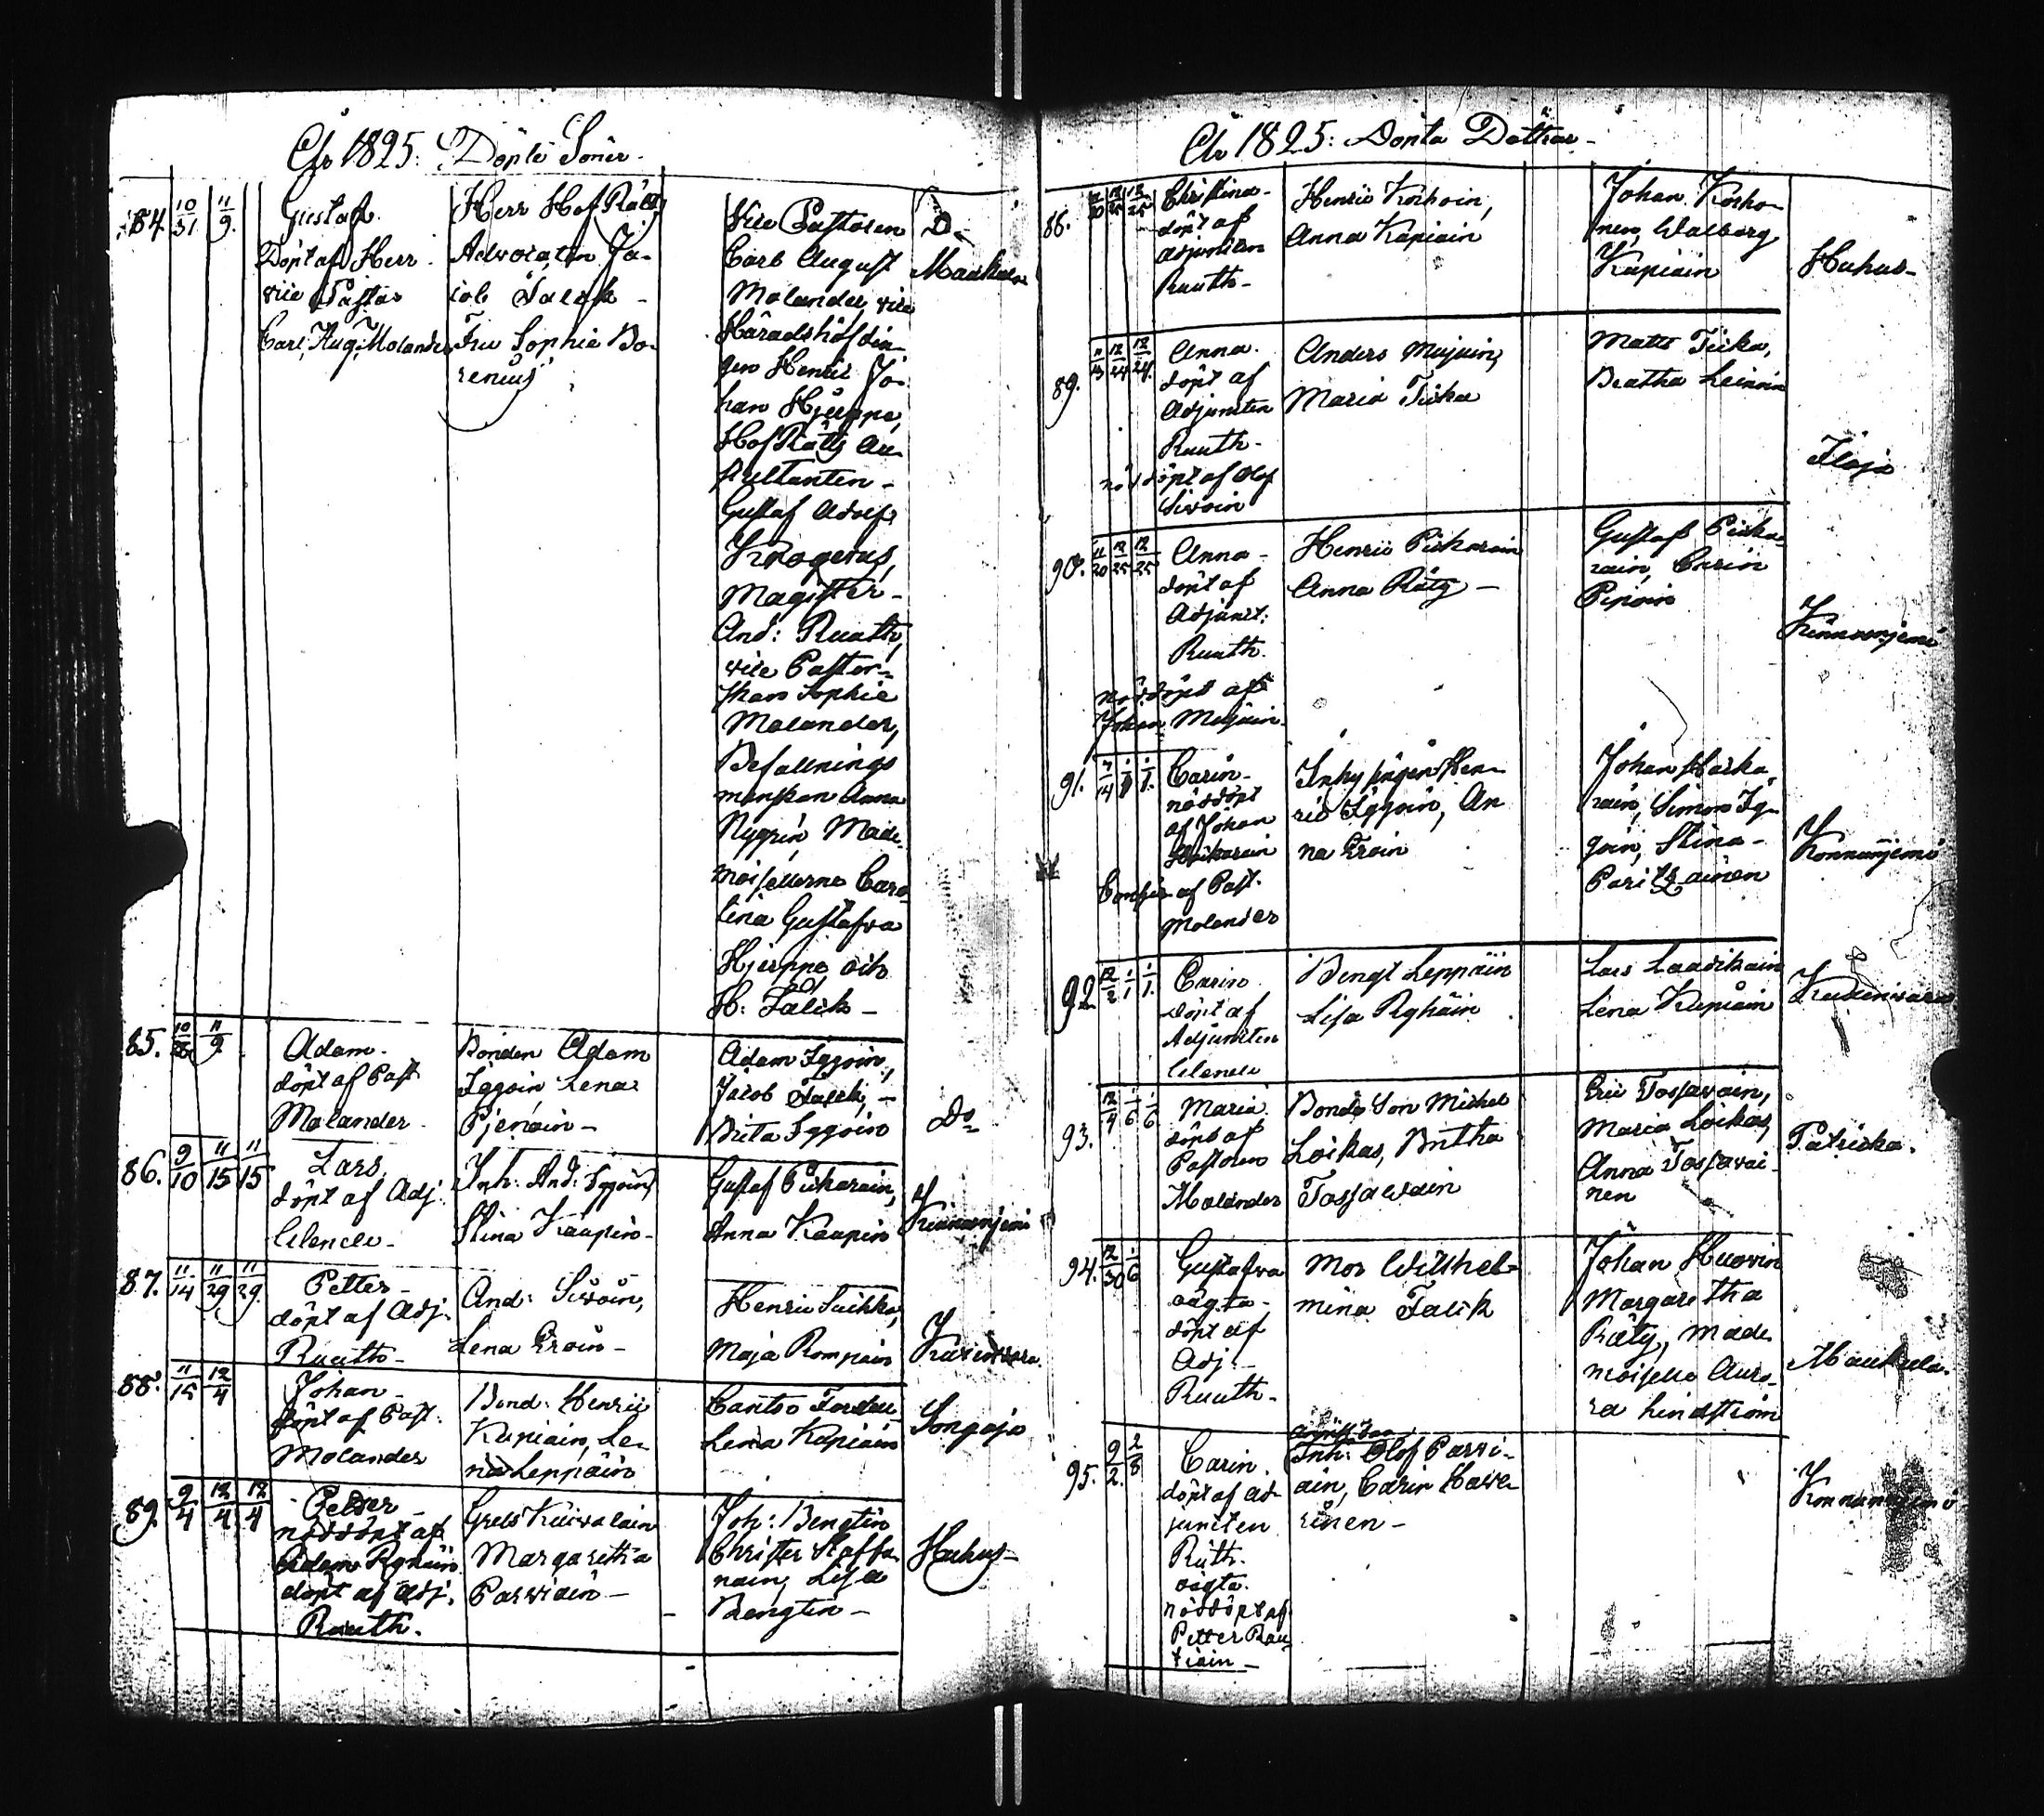 År 1825: Döpte Söner.
84. 10/31 11/9.
Gustaf.
Döpt af Herr
vice Pastor
Carl Aug. Molander
Herr HofRätts
Advocaten Ja-
cob Falck -
Fru Sophie Bo-
renius
Vice Pastoren
Carl August
Molander, vice
Häradshöfdin-
gen Henric Jo-
han Hjerppe,
HofRätts Au-
skultanten -
Gustaf Adolf
Krogerus,
Magister -
And: Ruuth,
vice Pastor-
skan Sophie
Molander,
Befallnings
manskan Anna
Nygrén, Made-
moisellerna Caro-
lina Gustafva
Hjerppe och
H: Falck -
D:
Maukula
85. 11/9.
Adam.
döpt af Past
Molander
Bonden Adam
Iggoin, Lena
Pjenäin -
Adam Iggoin,
Jacob Falck, -
Brita Iggoin
Do
86. 9/10 11/15 11/15
Lars.
döpt af Adj.
Clenele -
Inh: And: Iggoin,
Stina Kaupin -
Gustaf Pickarain,
Anna Kaupin
Kinnasnjemi
87. 11/14 11/29 11/29.
Petter -
döpt af Adj.
Ruuth -
And: Sivoin,
Lena Eroin -
Henric Suikka,
Maja Rompain
88. 11/15 12/4
Johan -
döpt af Past:
Molander
Bond: Henric
Kapiain, Le-
na Leppäin
Cantso
Lena Kapiain
Songaja
89. 9/4 12/4 12/4
Petter -
nöddöpt af
Adam Rghäin
döpt af Adj.
Ruuth.
Grels Kuivalain
Margaretha
Parviain -
Joh: Bengtin
Christer Hoffre-
nain, Lisa
Bengtin -
Huhus -
År 1825: Döpta Döttrar -
88. 12/25 12/25
Christina -
döpt af
Adjuncten
Ruuth -
Henric Korhoin,
Anna Kapiain
Johan Korho-
nen, Walborg
Kapiain
Huhus -
89. 11/13 12/24 12/24.
Anna.
döpt af
Adjuncten
Ruuth -
nöddöpt af Olof
Sivoin
Anders Mujuin,
Maria Ticka
Matts Ticka,
Beatha Leinoin
Ilaja
90. 11/20 12/25 12/25
Anna -
döpt af
Adjunct:
Ruuth.
nöddöpt af
Johan Mujuin.
Henric Pickarain
Anna Räty -
Gustaf Picka-
rain, Carin
Piipoin
Kinnasnjemi
91. 1/1.
Carin -
nöddöpt
af Johan
Pickarain
af Past.
Molander
Inhysingen Hen-
ric Iggoin, An
na Eroin
Johan Picka-
rain, Simon Ig-
goin, Stina -
Paritzainen
Konnunjemi
92 12/2 1/1 1/1.
Carin
döpt af
Adjuncten
Clenele
Bengt Leppäin
Lisa Rghäin
Lars Laadikain
Lena Kapiain
93. 12/4 1/6 1/6
Maria.
döpt af
Pastoren
Molander
Bonde Son Michel
Loikas, Britha
Tossawain
Eric Tossavain,
Maria Loikas,
Anna Tossavai-
nen
Patricka.
94. 12/30 1/6
Gustafva
oägta -
döpt af
Adj: -
Ruuth -
Mor Wilhel-
mina Falck
Johan Huovin
Margaretha
Räty, Made-
moiselle Auro-
ra Lindström
Maukula.
95. 9/2. 2/8
Carin.
döpt af ad-
juncten
Rúth.
oägta.
nöddöpt af
Petter Rau-
tiain -
Inh: Olof Parvi-
ain, Carin Have-
rinen -
Konnunnjemi